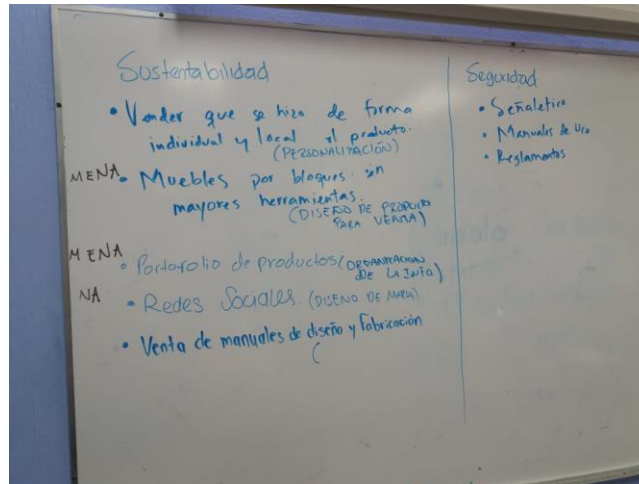 Sustentabilidad
• Vender que se hizo de forma
individual y local el producto.
(PERSONALIZACIÓN)
MENA • Muebles por bloques sin
mayores herramientas.
(DISEÑO DE PRODUCTO
PARA VENTA)
MENA • Portafolio de productos (ORGANIZACION
DE LA INFO)
NA • Redes Sociales. (DISEÑO DE MARCA)
• Venta de manuales de diseño y fabricación
(
Seguridad
• Señaletica
• Manuales de Uso
• Reglamentos